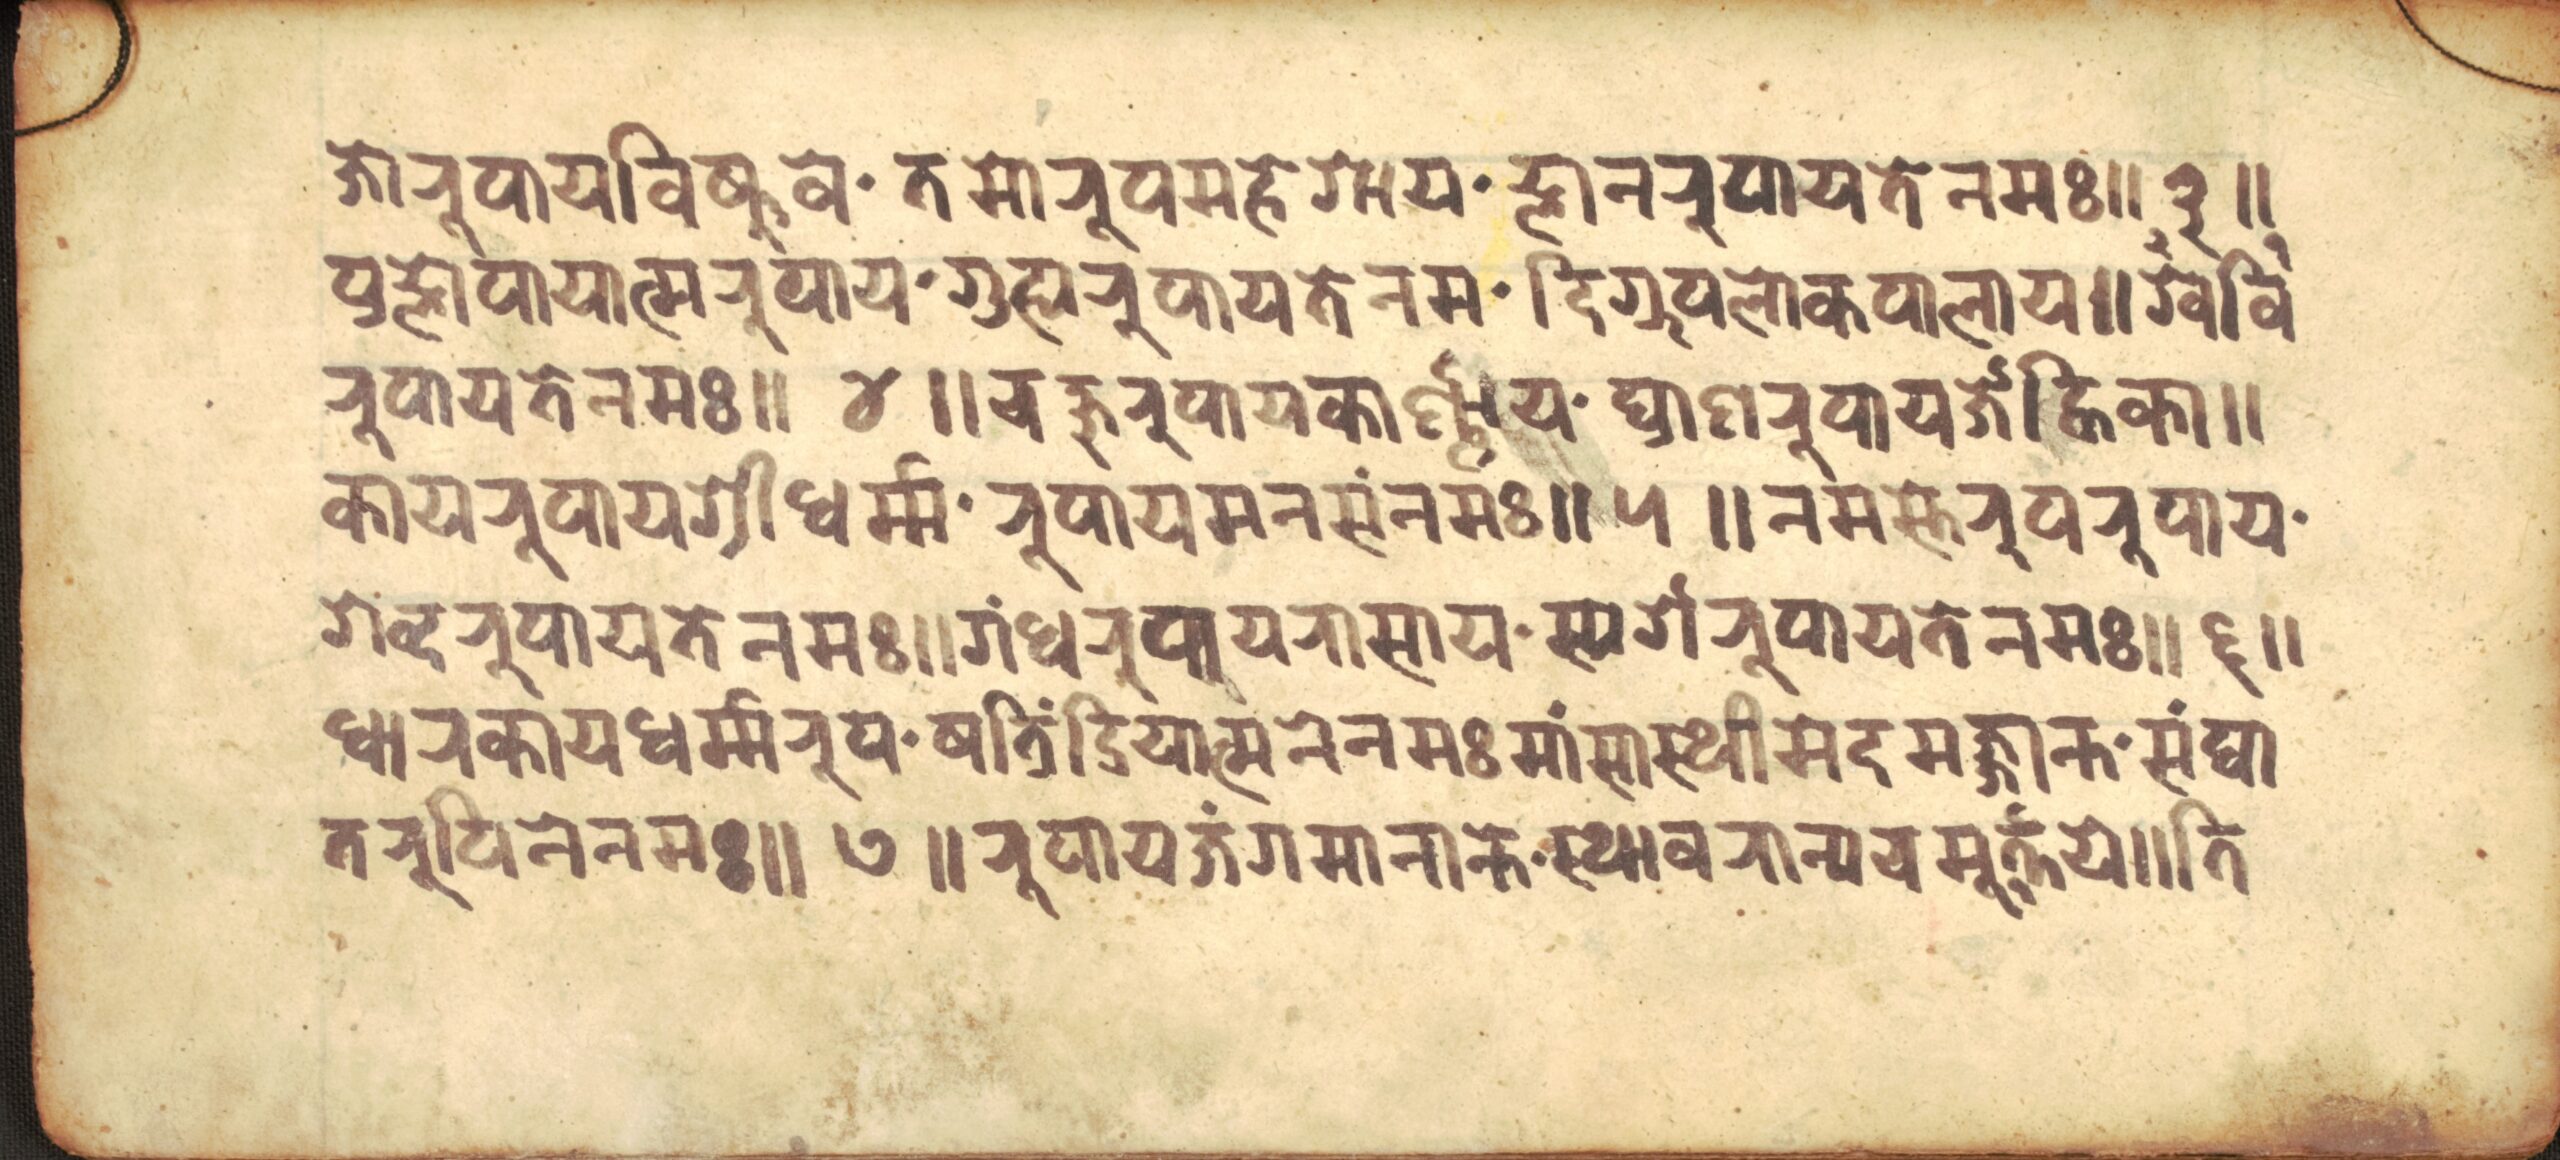 जोरूपायविष्णुवे· तमोरूपमहेशाय· ज्ञानरूपायतेनमः॥ ३ ॥
प्रज्ञोपायात्मरूपाय· गुह्यरूपायतेनम· दिग्रूपलोकपालाय॥ विश्व
रूपायतेनमः॥ ४ ॥ चक्षुरूपायकार्ण्णाय· घ्राणरूपायजेंह्विका॥
कायरूपायश्रीधर्म्म· रूपायमनसंनमः॥ ५ ॥ नमस्तेरूपरूपाय·
शब्दरूपायतेनमः॥ गंधरूपायरासाय· स्पर्शरूपायतेनमः॥ ६ ॥
धारकायधर्म्मरूप· षत्रिंद्रियात्मनेनमः मांसास्थीमेदमज्जान्त· संघा
तरूपिनेनमः॥ ७ ॥ रूपायजंगमानान्ते· स्थावरान्यचमूर्त्तये॥ ति